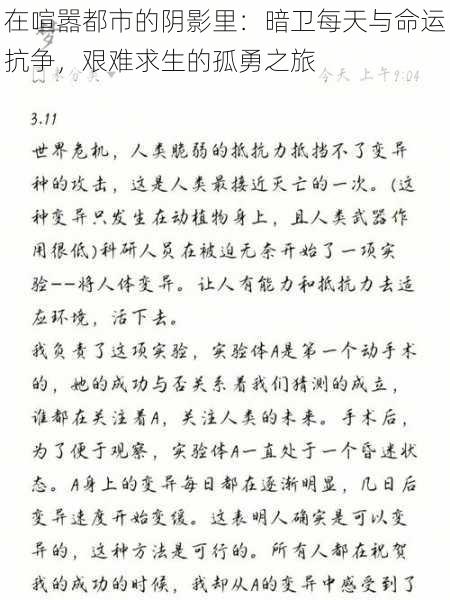 在喧嚣都市的阴影里：暗卫每天与命运
抗争，艰难求生的孤勇之旅
未分类
今天 上午9:04
3.11
世界危机，人类脆弱的抵抗力抵挡不了变异
种的攻击，这是人类最接近灭亡的一次。(这
种变异只发生在动植物身上，且人类武器作
用很低)科研人员在被迫无奈开始了一项实
验--将人体变异。让人有能力和抵抗力去适
应环境，活下去。
我负责了这项实验，实验体A是第一个动手术
的，她的成功与否关系着我们猜测的成立，
谁都在关注着A，关注人类的未来。手术后，
为了便于观察，实验体A一直处于一个昏迷状
态。A身上的变异每日都在逐渐明显，几日后
变异速度开始变缓。这表明人确实是可以变
异的，这种方法是可行的。所有人都在祝贺
我的成功的时候，我却从A的变异中感受到了